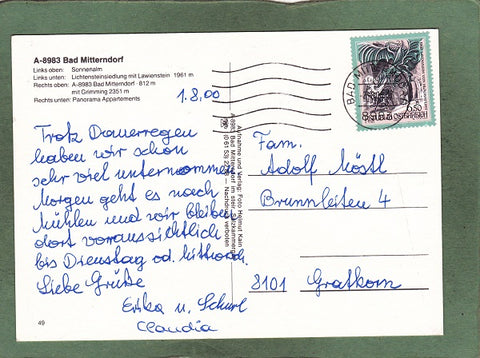 A-8983 Bad Mitterndorf
Links oben: Sonnenalm
Links unten: Lichtensteinsiedlung mit Lawienstein 1961 m
Rechts oben: A-8983 Bad Mitterndorf · 812 m
mit Grimming 2351 m
Rechts unten: Panorama Appartements
1.8.00
Trotz Dauerregen
haben wir schon
sehr viel unternommen
Morgen geht es nach
Mühlen und wir bleiben
dort voraussichtlich
bis Dienstag od. Mittwoch.
Liebe Grüße
Erika u. Schurl
Claudia
49
Aufnahme und Verlag: Foto Helmut Kain
A-8983 Bad Mitterndorf im steir. Salzkammergut
Nachdruck verboten
BAD MITTERNDORF
8983
Fam.
Adolf Möstl
Brunnleiten 4
8101 Gratkorn